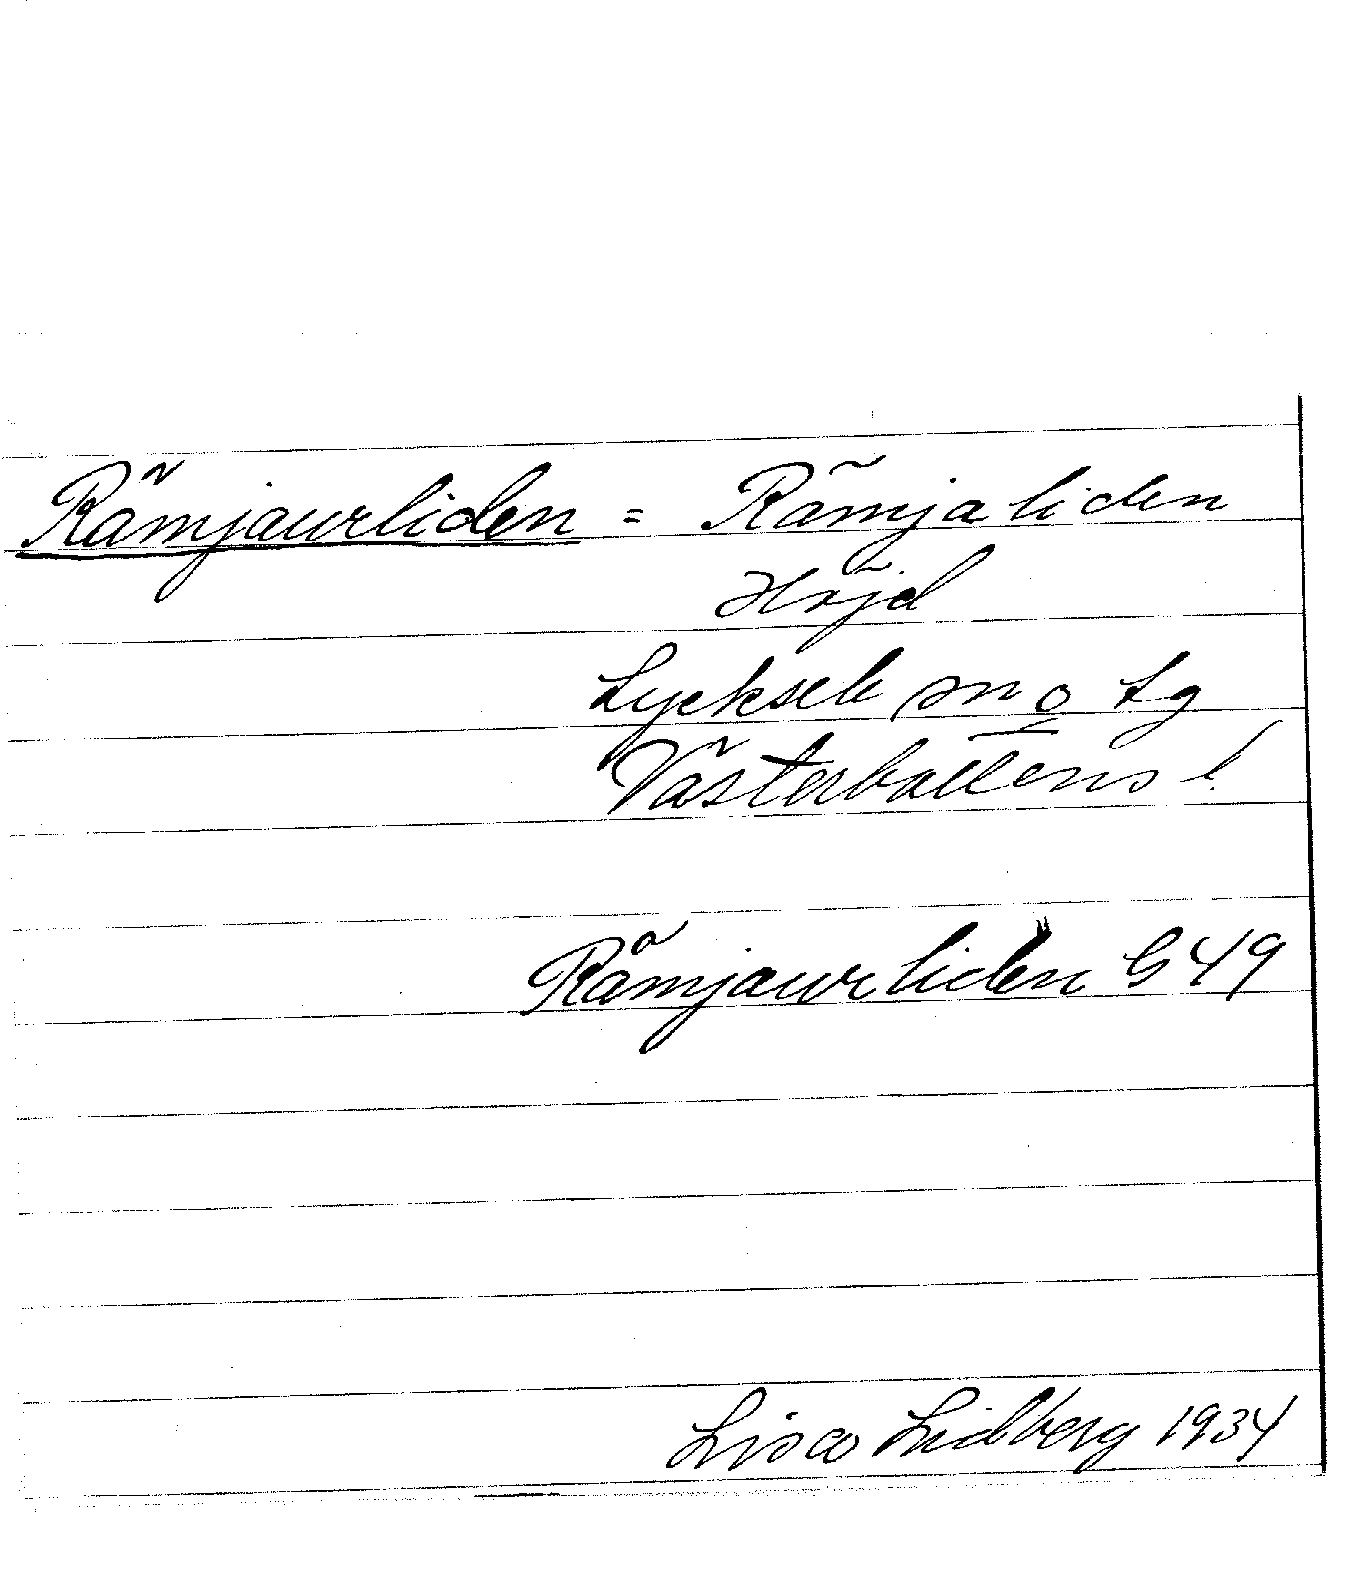 Rämjaurliden = Rämjaliden
Höjd
Lycksele sn o tg
Västerbottens l.
Råmjaurliden G 49
Lisa Lidberg 1934